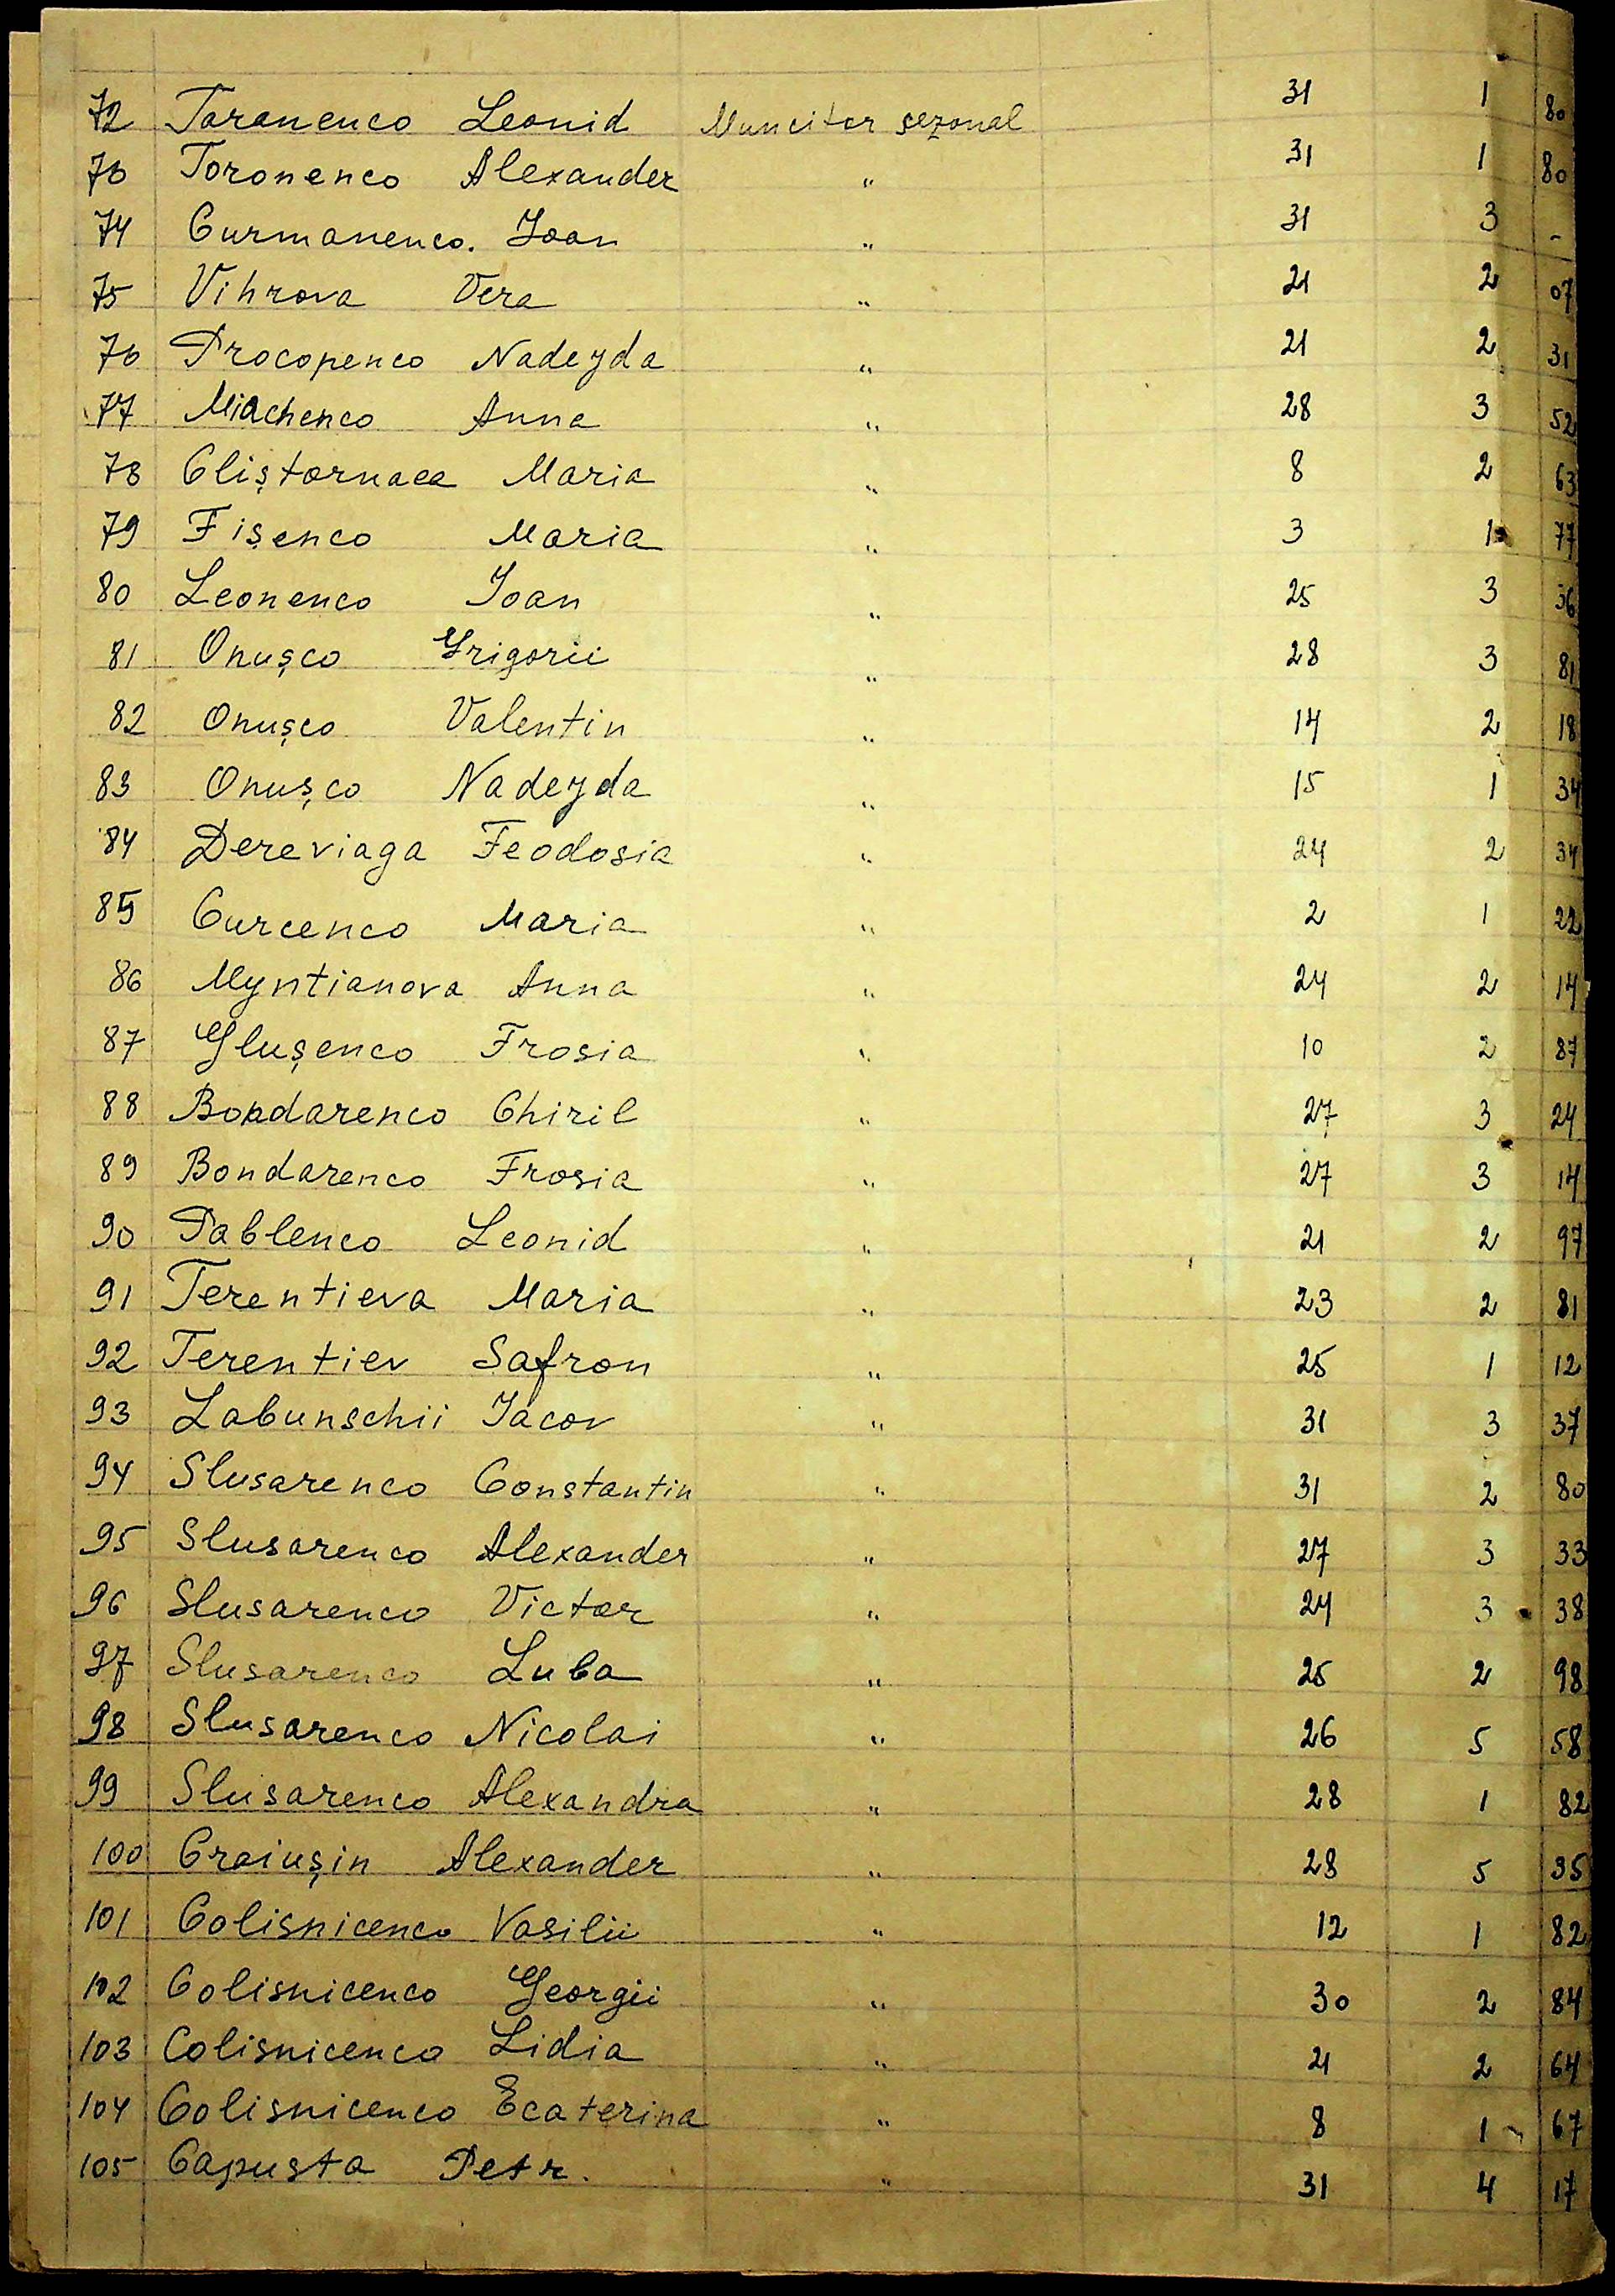 72 Taranenco Leonid Muncitor sezonal 31 1 80
76 Toronenco Alexander " 31 1 80
74 Curmanenco. Ioan " 31 3 -
75 Vihrova Vera " 21 2 07
76 Procopenco Nadejda " 21 2 31
77 Miachenco Anna " 28 3 52
78 Cliștornaea Maria " 8 2 63
79 Fișenco Maria " 3 1 77
80 Leonenco Ioan " 25 3 36
81 Onușco Grigorii " 28 3 81
82 Onușco Valentin " 14 2 18
83 Onușco Nadejda " 15 1 34
84 Dereviaga Feodosia " 24 2 34
85 Curcenco Maria " 2 1 22
86 Myntianova Anna " 24 2 14
87 Glușenco Frosia " 10 2 87
88 Bondarenco Chiril " 27 3 24
89 Bondarenco Frosia " 27 3 14
90 Pablenco Leonid " 21 2 97
91 Terentieva Maria " 23 2 81
92 Terentiev Safron " 25 1 12
93 Labunschii Iacov " 31 3 37
94 Slusarenco Constantin " 31 2 80
95 Slusarenco Alexander " 27 3 33
96 Slusarenco Victor " 24 3 38
97 Slusarenco Luba " 25 2 98
98 Slusarenco Nicolai " 26 5 58
99 Slusarenco Alexandra " 28 1 82
100 Craiușin Alexander " 28 5 35
101 Colisnicenco Vasilii " 12 1 82
102 Colisnicenco Georgii " 30 2 84
103 Colisnicenco Lidia " 21 2 64
104 Colisnicenco Ecaterina " 8 1 67
105 Capusta Petr. " 31 4 17